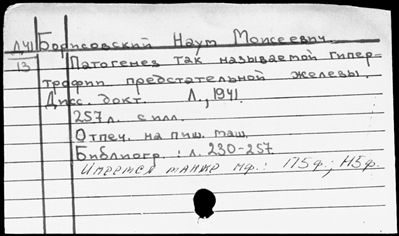 Д41 Борисовский Наум Моисеевич
13 Патогенез так называемой гипер=
трофии предстательной железы.
Дисс. докт. Л., 1941.
257 л. с илл.
Отпеч. на пиш. маш.
Библиогр.: л. 230-257
Имеется также мф.: 175 ф.;